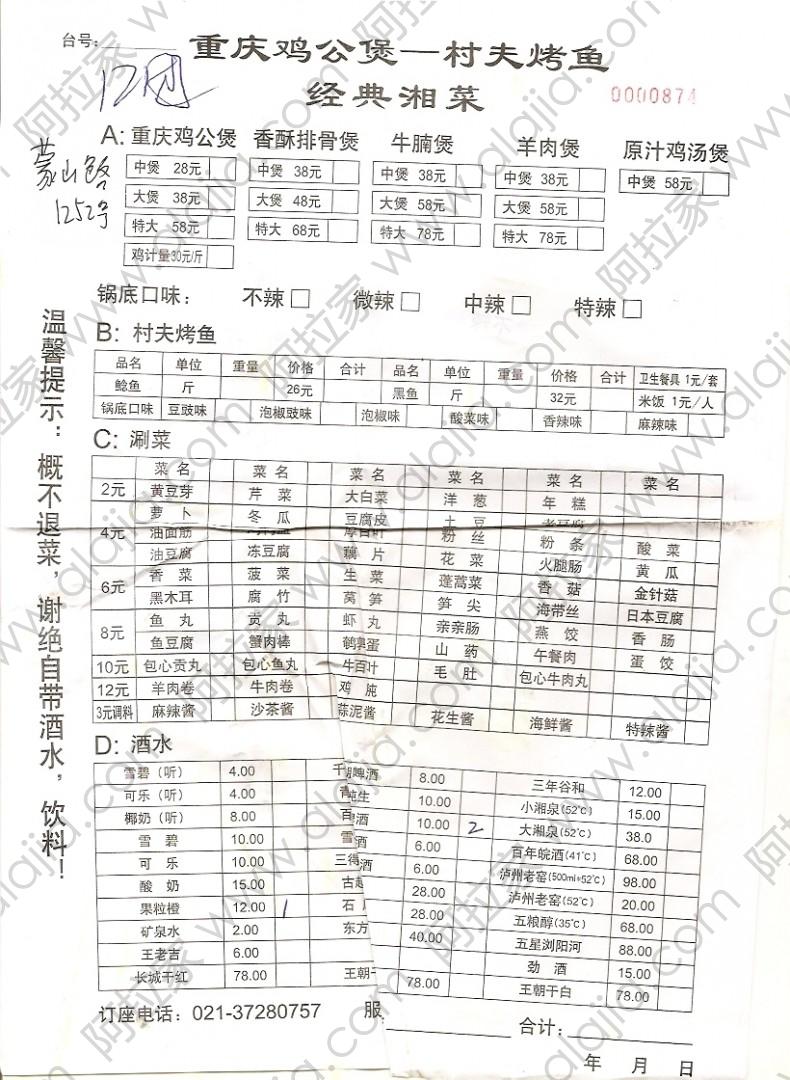 台号:
重庆鸡公煲—村夫烤鱼
经典湘菜
0000874
蒙山路
1252号
A: 重庆鸡公煲 香酥排骨煲 牛腩煲 羊肉煲 原汁鸡汤煲
中煲 28元 中煲 38元 中煲 38元 中煲 38元 中煲 58元
大煲 38元 大煲 48元 大煲 58元 大煲 58元
特大 58元 特大 68元 特大 78元 特大 78元
鸡计量30元/斤
锅底口味: 不辣 微辣 中辣 特辣
B: 村夫烤鱼
品名 单位 重量 价格 合计 品名 单位 重量 价格 合计 卫生餐具 1元/套
鲶鱼 斤 26元 黑鱼 斤 32元 米饭 1元/人
锅底口味 豆豉味 泡椒豉味 泡椒味 酸菜味 香辣味 麻辣味
C: 涮菜
菜名 菜名 菜名 菜名 菜名 菜名
2元 黄豆芽 芹菜 大白菜 洋葱 年糕
萝卜 冬瓜 豆腐皮 土豆
4元 油面筋 粉丝 粉条 酸菜
油豆腐 冻豆腐 藕片 花菜 火腿肠 黄瓜
6元 香菜 菠菜 生菜 蓬蒿菜 香菇 金针菇
黑木耳 腐竹 莴笋 笋尖 海带丝 日本豆腐
8元 鱼丸 贡丸 虾丸 亲亲肠 燕饺 香肠
鱼豆腐 蟹肉棒 鹌鹑蛋 山药 午餐肉 蛋饺
10元 包心贡丸 包心鱼丸 牛百叶 毛肚 包心牛肉丸
12元 羊肉卷 牛肉卷 鸡肫
3元调料 麻辣酱 沙茶酱 蒜泥酱 花生酱 海鲜酱 特辣酱
D: 酒水
雪碧(听) 4.00 啤酒 8.00 三年谷和 12.00
可乐(听) 4.00 生 10.00 小湘泉(52℃) 15.00
椰奶(听) 8.00 酒 10.00 2 大湘泉(52℃) 38.0
雪碧 10.00 雪 酒 6.00 百年皖酒(41℃) 68.00
可乐 10.00 三得 酒 6.00 泸州老窖(500ml+52℃) 98.00
酸奶 15.00 28.00 泸州老窖(52℃) 20.00
果粒橙 12.00 1 石 28.00 五粮醇(35℃) 68.00
矿泉水 2.00 东方 40.00 五星浏阳河 88.00
王老吉 6.00 劲酒 15.00
长城干红 78.00 王朝干 78.00 王朝干白 78.00
订座电话: 021-37280757 服 合计:
年 月 日
温馨提示:概不退菜,谢绝自带酒水,饮料!
阿拉家 www.alajia.com